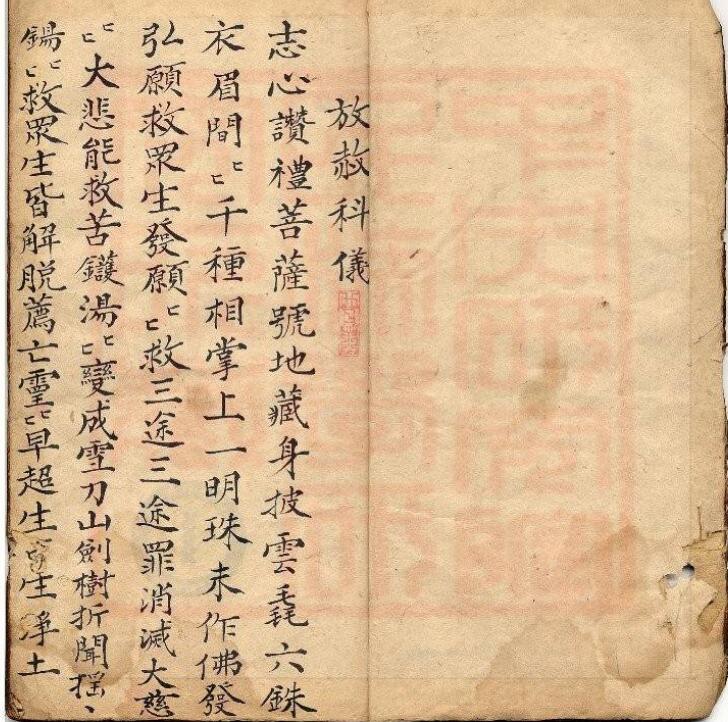 放赦科儀
志心讚禮菩薩號地藏身披雲毳六銖
衣眉間〻〻千種相掌上一明珠未作佛發
弘願救眾生發願〻〻救三途三途罪消滅大慈
〻〻大悲能救苦鑊湯〻〻變成雪刀山劍樹折聞摇〻
錫〻〻救眾生皆解脱薦亡靈〻〻早超生生淨土